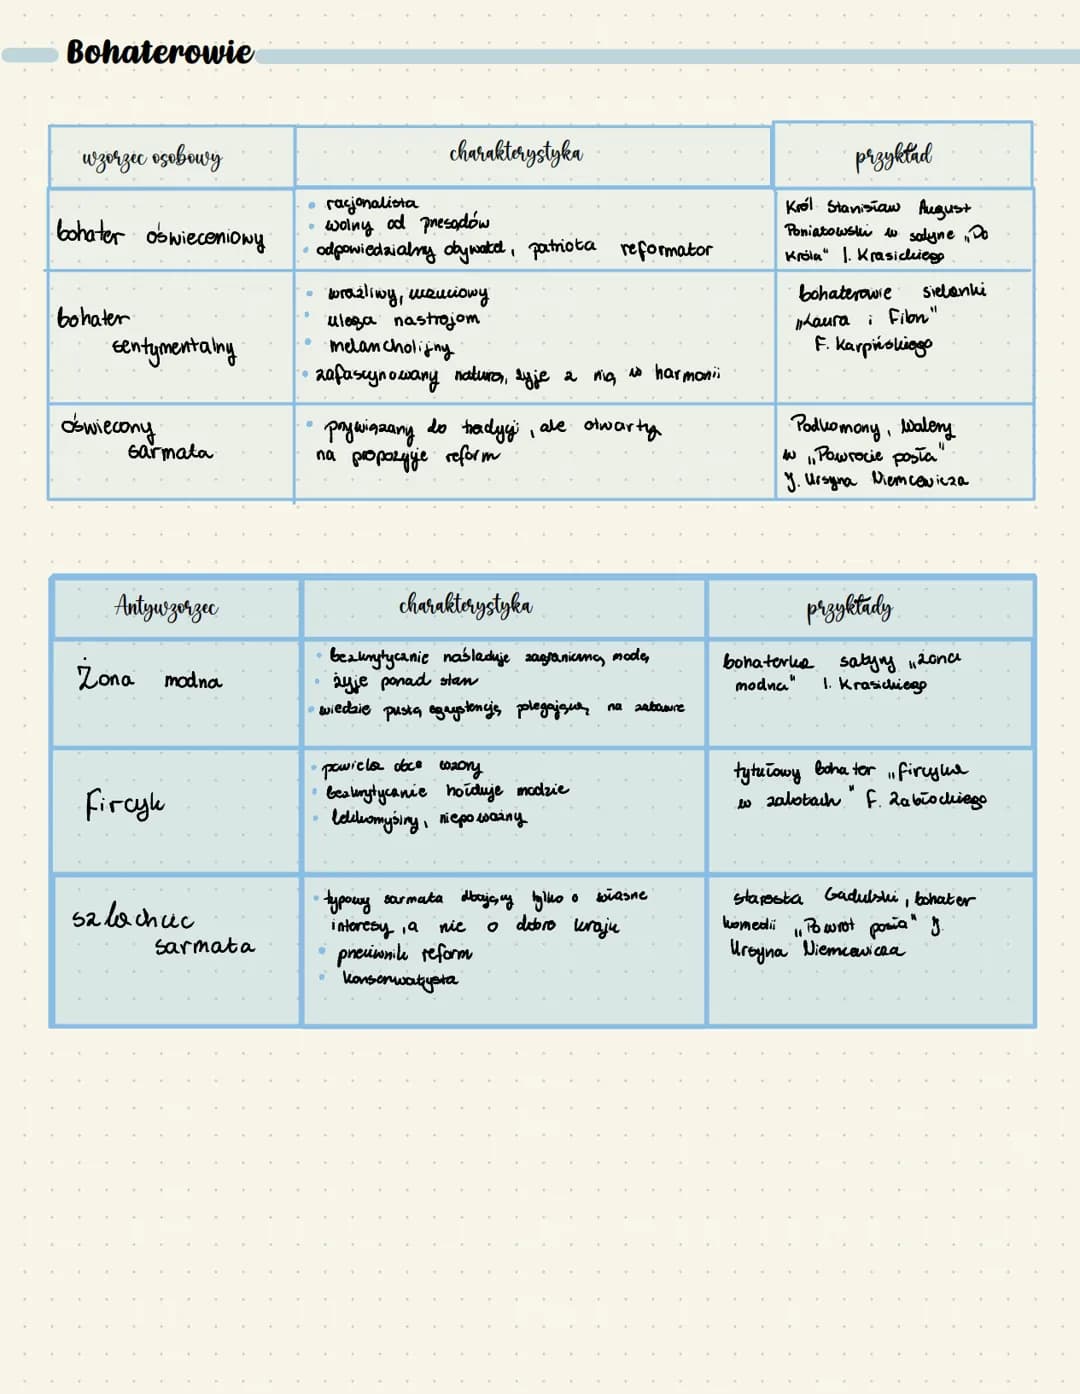 Bohaterowie
wzorzec osobowy
charakterystyka
przykład
bohater oświeceniowy
racjonalista
wolny od przesądów
odpowiedzialny obywatel, patriota reformator
Król Stanisław August
Poniatowski w satyrze „Do
Króla" I. Krasickiego
bohater
sentymentalny
wrażliwy, uczuciowy
ulega nastrojom
melancholijny
zafascynowany naturą, żyje z nią w harmonii
bohaterowie sielanki
„Laura i Filon"
F. Karpińskiego
oświecony
sarmata
przywiązany do tradycji, ale otwarty
na propozycje reform
Podkomorzy, Walery
w „Powrocie posła"
J. Ursyna Niemcewicza
Antywzorzec
charakterystyka
przykłady
Żona modna
bezkrytycznie naśladuje zagraniczną modę
żyje ponad stan
wiedzie pustą egzystencję polegającą na zabawie
bohaterka satyry „Żona
modna" I. Krasickiego
Fircyk
powiela obce wzory
bezkrytycznie hołduje modzie
lekkomyślny, niepoważny
tytułowy bohater „Fircyka
w zalotach" F. Zabłockiego
szlachcic
sarmata
typowy sarmata dbający tylko o własne
interesy, a nie o dobro kraju
przeciwnik reform
konserwatysta
starosta Gadulski, bohater
komedii „Powrót posła" J.
Ursyna Niemcewicza